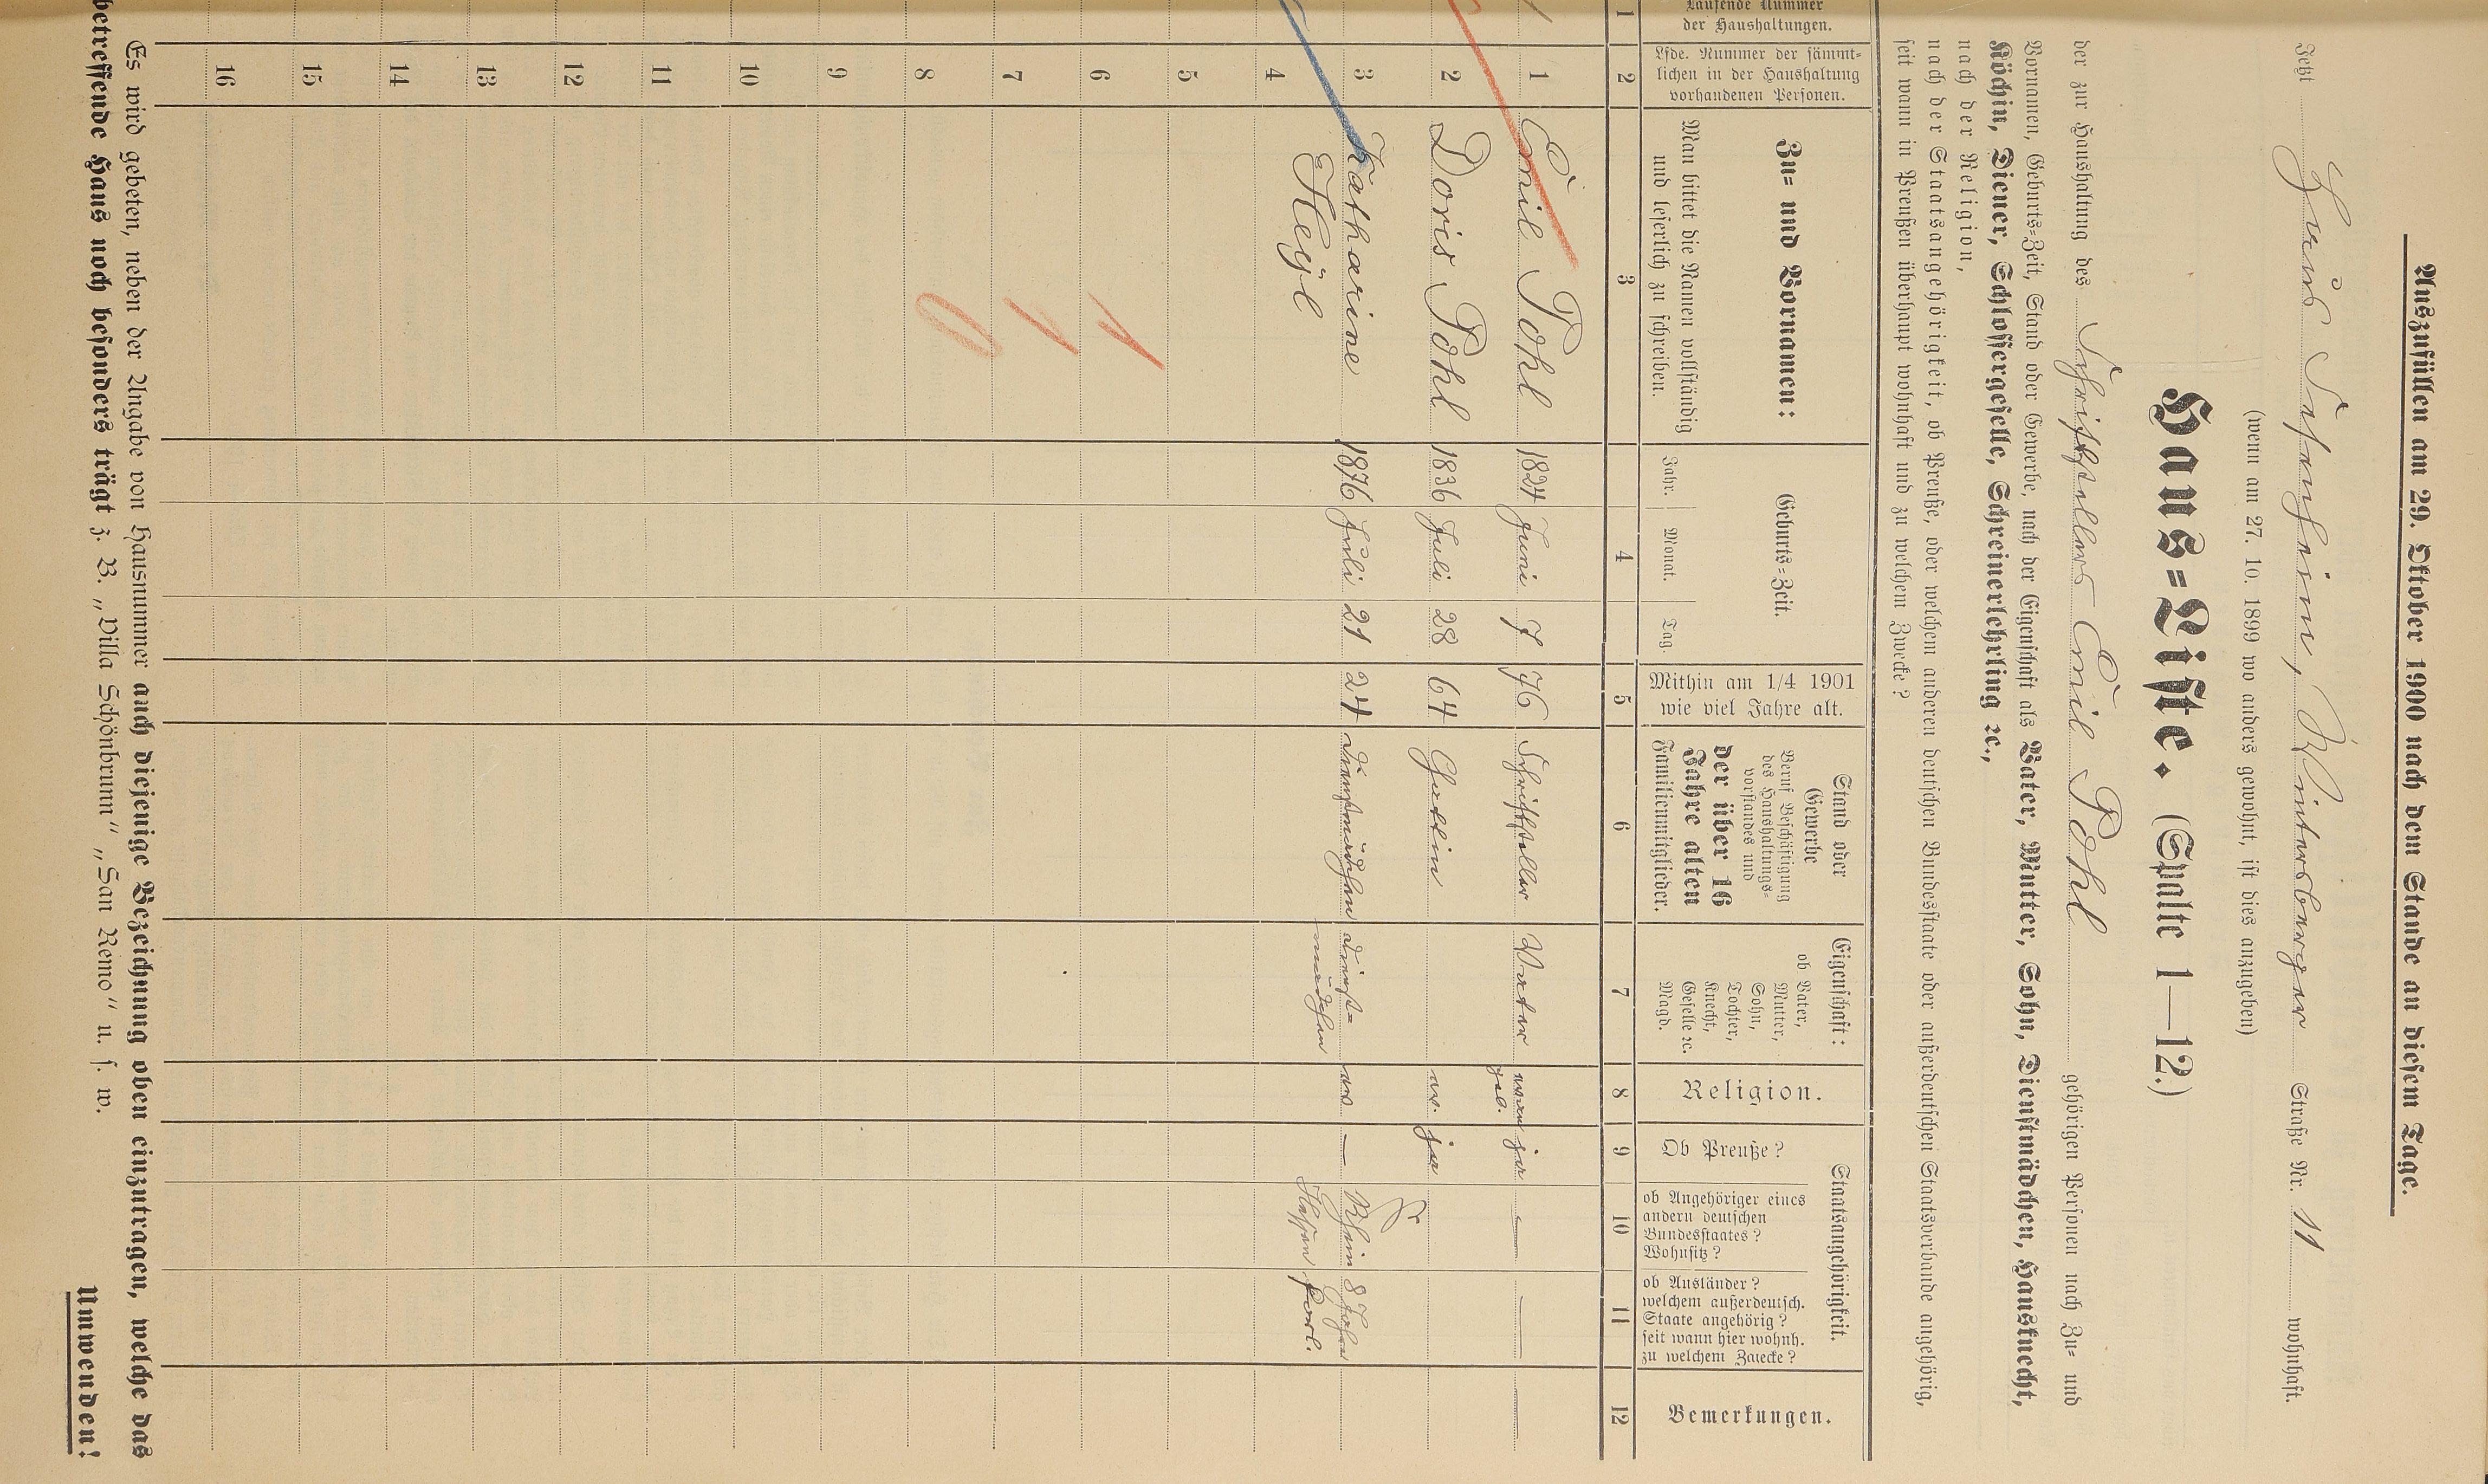 Auszufüllen am 29. Oktober 1900 nach dem Stande an diesem Tage.
Jetzt Haus Sesenheim, Wintersberger Straße Nr. 11 wohnhaft.
(wenn am 27. 10. 1899 wo anders gewohnt, ist dies anzugeben)
Haus=Liste. (Spalte 1—12.)
der zur Haushaltung des Schriftstellers Emil Pohl gehörigen Personen nach Zu= und
Vornamen, Geburts=Zeit, Stand oder Gewerbe, nach der Eigenschaft als Vater, Mutter, Sohn, Dienstmädchen, Hausknecht,
Köchin, Diener, Schlossergeselle, Schreinerlehrling ꝛc.,
nach der Religion,
nach der Staatsangehörigkeit, ob Preuße, oder welchem anderen deutschen Bundesstaate oder außerdeutschen Staatsverbande angehörig,
seit wann in Preußen überhaupt wohnhaft und zu welchem Zwecke?
Laufende Nummer
der Haushaltungen.
Lfde. Nummer der sämmt=
lichen in der Haushaltung
vorhandenen Personen.
Zu= und Vornamen:
Man bittet die Namen vollständig
und leserlich zu schreiben.
Geburts=Zeit.
Jahr. Monat. Tag.
Mithin am 1/4 1901
wie viel Jahre alt.
Stand oder
Gewerbe
Beruf Beschäftigung
des Haushaltungs=
vorstandes und
der über 16
Jahre alten
Familienmitglieder.
Eigenschaft:
ob Vater,
Mutter,
Sohn,
Tochter,
Knecht,
Geselle ꝛc.
Magd.
Religion.
Staatsangehörigkeit.
Ob Preuße?
ob Angehöriger eines
andern deutschen
Bundesstaates?
Wohnsitz?
ob Ausländer?
welchem außerdeutsch.
Staate angehörig?
seit wann hier wohnh.
zu welchem Zwecke?
Bemerkungen.
1 2 3 4 5 6 7 8 9 10 11 12
1 1 Emil Pohl 1824 Juni 7 76 Schriftsteller Vater ja — — —
2 Doris Pohl 1836 Juli 28 64 Gattin ev. ja
3 Katharine 1876 Juli 21 24 Dienstmädchen Dienst= ev — Rhein 8 Jahre
4 Heyl mädchen Hessen
5
6 1
7 1
8 0
9
10
11
12
13
14
15
16
Es wird gebeten, neben der Angabe von Hausnummer auch diejenige Bezeichnung oben einzutragen, welche das
betreffende Haus noch besonders trägt z. B. „Villa Schönbrunn“ „San Remo“ u. s. w.
Umwenden!